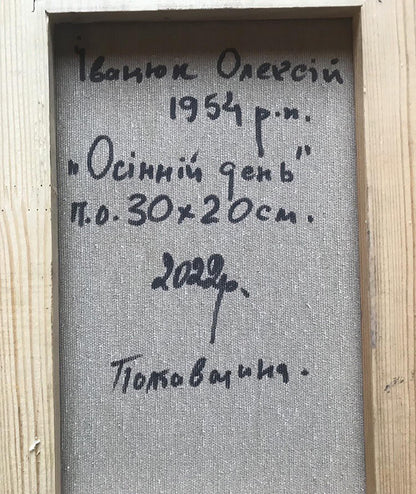 Івацюк Олексій
1954 р.н.
"Осінній день"
п.о. 30х20см.
2022р.
Полтавщина.